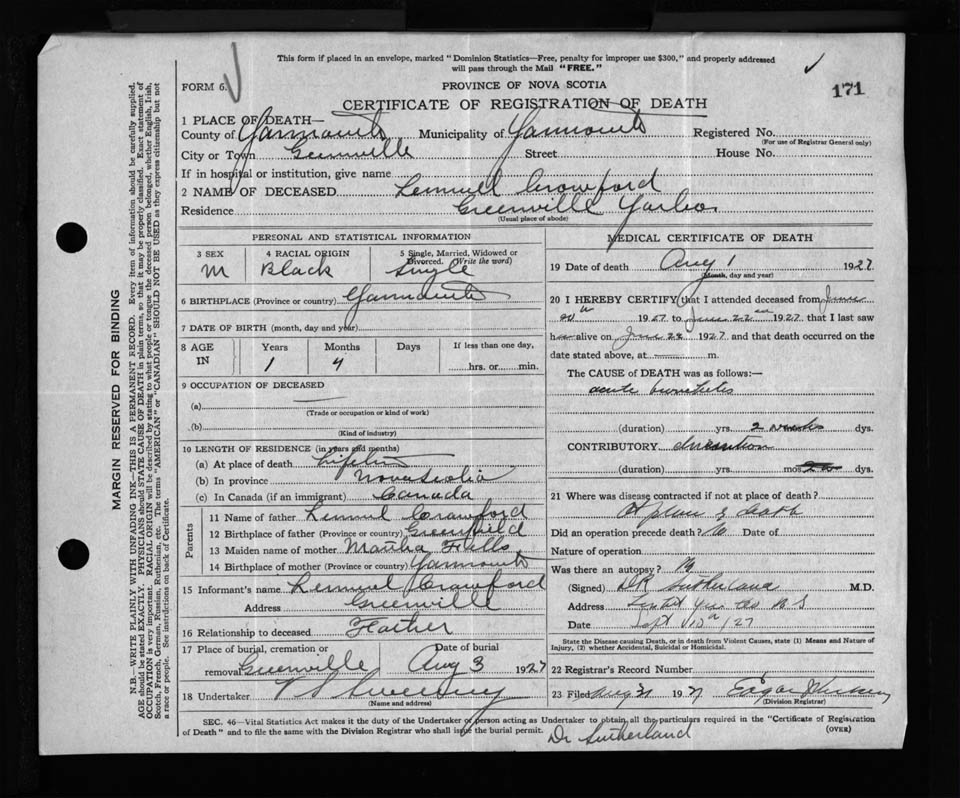 This form if placed in an envelope, marked "Dominion Statistics—Free, penalty for improper use $300," and properly addressed
will pass through the Mail "FREE."
FORM 6.
PROVINCE OF NOVA SCOTIA
171
CERTIFICATE OF REGISTRATION OF DEATH
1 PLACE OF DEATH—
County of Yarmouth Municipality of Yarmouth Registered No.
(For use of Registrar General only)
City or Town Greenville Street House No.
If in hospital or institution, give name
2 NAME OF DECEASED Lemuel Crawford
Residence Greenville Yar
(Usual place of abode)
PERSONAL AND STATISTICAL INFORMATION
3 SEX M
4 RACIAL ORIGIN Black
5 Single, Married, Widowed or Divorced. (Write the word) Single
6 BIRTHPLACE (Province or country) Yarmouth
7 DATE OF BIRTH (month, day and year)
8 AGE IN Years 1 Months 4 Days If less than one day, hrs. or min.
9 OCCUPATION OF DECEASED
(a)
(Trade or occupation or kind of work)
(b)
(Kind of industry)
10 LENGTH OF RESIDENCE (in years and months)
(a) At place of death
(b) In province Nova Scotia
(c) In Canada (if an immigrant) Canada
Parents
11 Name of father Lemuel Crawford
12 Birthplace of father (Province or country) Greenfield
13 Maiden name of mother Martha
14 Birthplace of mother (Province or country) Yarmouth
15 Informant's name Lemuel Crawford
Address Greenville
16 Relationship to deceased Father
17 Place of burial, cremation or removal Greenville
Date of burial Aug 3 1927
18 Undertaker V S Sweeny
(Name and address)
MEDICAL CERTIFICATE OF DEATH
19 Date of death Aug 1 1927
(Month, day and year)
20 I HEREBY CERTIFY that I attended deceased from June
1927 to June 22 1927 that I last saw
h alive on June 22 1927 and that death occurred on the
date stated above, at m.
The CAUSE of DEATH was as follows:—
acute bronchitis
(duration) yrs. 2 weeks dys.
CONTRIBUTORY
(duration) yrs. mos. dys.
21 Where was disease contracted if not at place of death?
At place of death
Did an operation precede death? No Date of
Nature of operation
Was there an autopsy? No
(Signed) DR Sutherland M.D.
Address N S
Date Sept 10th / 27
State the Disease causing Death, or in death from Violent Causes, state (1) Means and Nature of
Injury, (2) whether Accidental, Suicidal or Homicidal.
22 Registrar's Record Number
23 Filed Aug 31 1927 Edgar
(Division Registrar)
SEC. 46—Vital Statistics Act makes it the duty of the Undertaker or person acting as Undertaker to obtain all the particulars required in the "Certificate of Registration
of Death" and to file the same with the Division Registrar who shall issue the burial permit.
(OVER)
Dr Sutherland
MARGIN RESERVED FOR BINDING
N.B.—WRITE PLAINLY WITH UNFADING INK—THIS IS A PERMANENT RECORD. Every item of information should be carefully supplied.
AGE should be stated EXACTLY. PHYSICIANS should STATE CAUSE OF DEATH in plain terms, so that it may be properly classified. Exact statement of
OCCUPATION is very important. RACIAL ORIGIN will be described by stating to what people or tongue the deceased person belonged, whether English, Irish,
Scotch, French, German, Russian, Ruthenian, etc. The terms "AMERICAN" or "CANADIAN" SHOULD NOT BE USED as they express citizenship but not
a race or people. See instructions on back of Certificate.